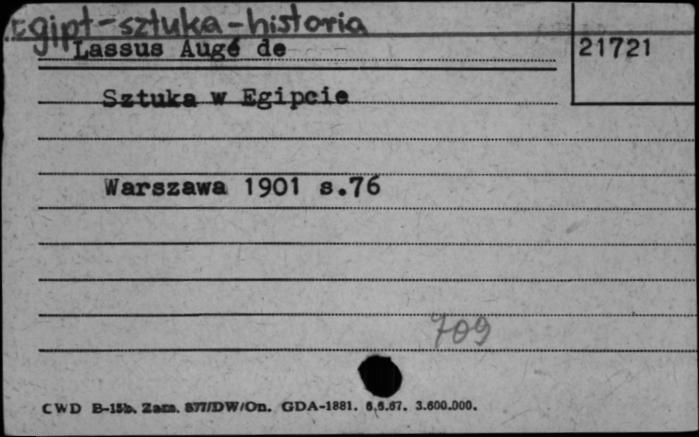 Egipt-sztuka-historia
Lassus Augé de
21721
Sztuka w Egipcie
Warszawa 1901 s.76
709
CWD B-15b. Zam. 877/DW/On. GDA-1881. 6.6.67. 3.600.000.